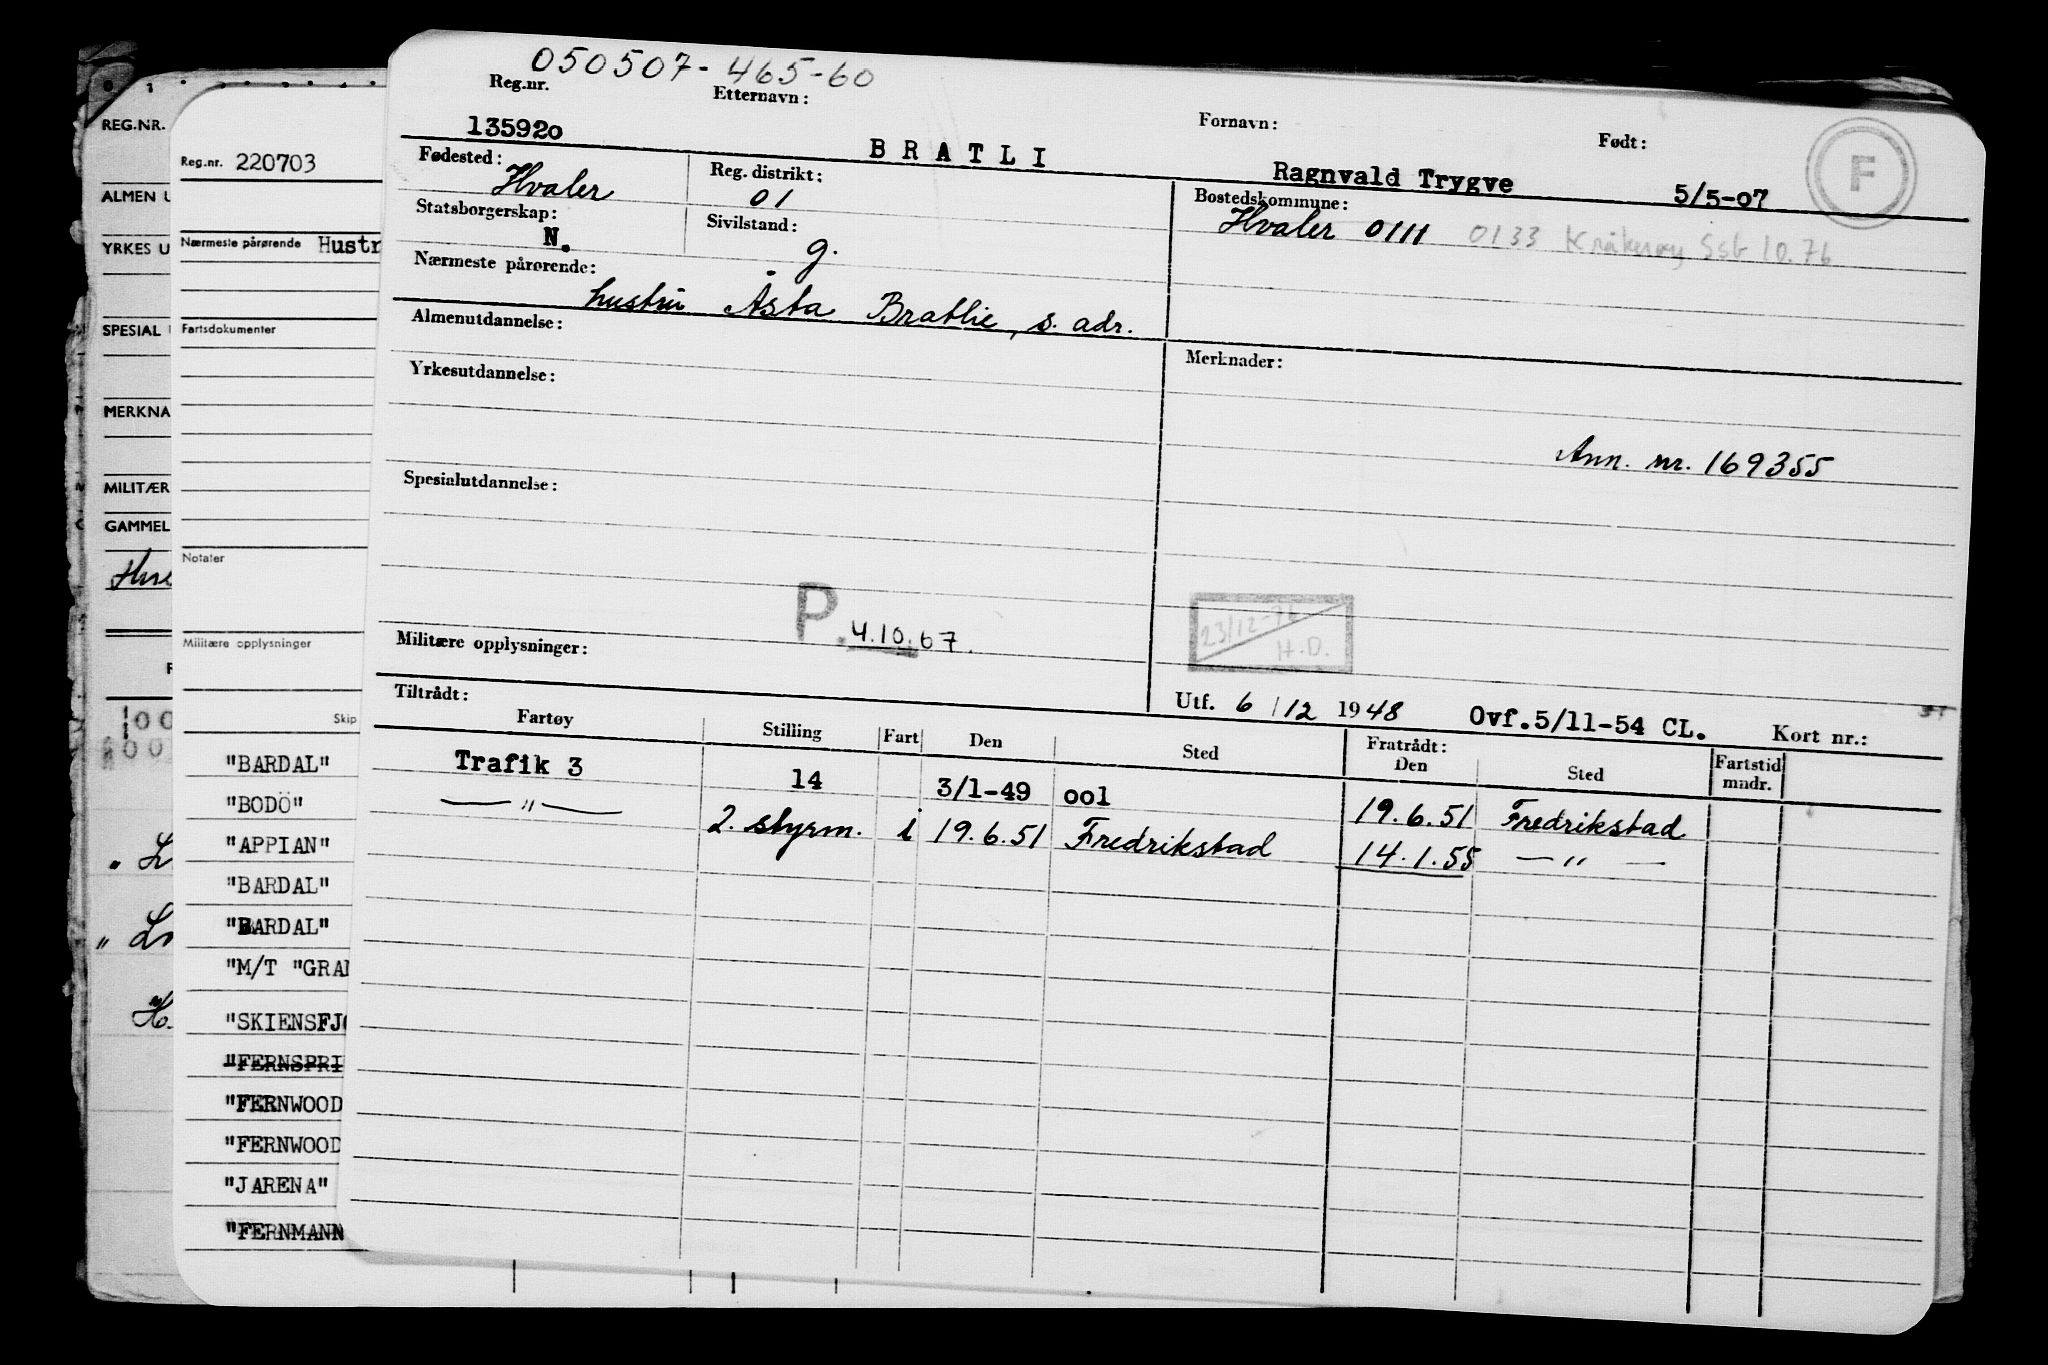 050507-465-60
Reg.nr. Etternavn: Fornavn: Født:
135920 BRATLI Ragnvald Trygve 5/5-07 F
Fødested: Reg. distrikt: Bostedskommune:
Hvaler 01 Hvaler 0111 0133 Kråkerøy Ssb 10.76
Statsborgerskap: Sivilstand:
N. g.
Nærmeste pårørende:
hustru Åsta Bratlie, s. adr.
Almenutdannelse: Merknader:
Yrkesutdannelse:
Ann. nr. 169355
Spesialutdannelse:
P. 4.10.67. 23/12-76 H.D.
Militære opplysninger:
Utf. 6/12 1948 Ovf.5/11-54 CL. Kort nr.:
Tiltrådt: Fratrådt:
Fartøy Stilling Fart Den Sted Den Sted Fartstid mndr.
Trafik 3 14 3/1-49 ool 19.6.51 Fredrikstad
—〃— 2. styrm. i 19.6.51 Fredrikstad 14.1.55 —〃—
Reg.nr. 220703
Nærmeste pårørende Hustr
Fartsdokumenter
Notater
Militære opplysninger
Skip
"BARDAL"
"BODÖ"
"APPIAN"
"BARDAL"
"BARDAL"
"M/T "GRAN
"SKIENSFJO
"FERNSPRI
"FERNWOOD
"FERNWOOD
"JARENA"
"FERNMANN
REG.NR.
ALMEN U
YRKES U
SPESIAL
MERKNA
MILITÆR
GAMMEL